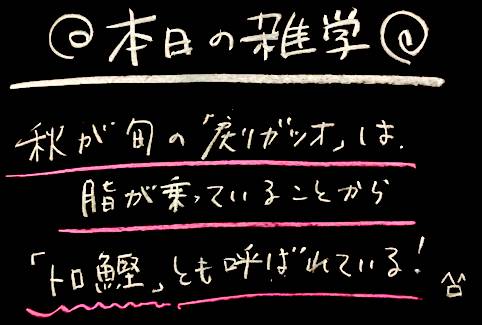 本日の雑学
秋が旬の「戻りガツオ」は、
脂が乗っていることから
「トロ鰹」とも呼ばれている!